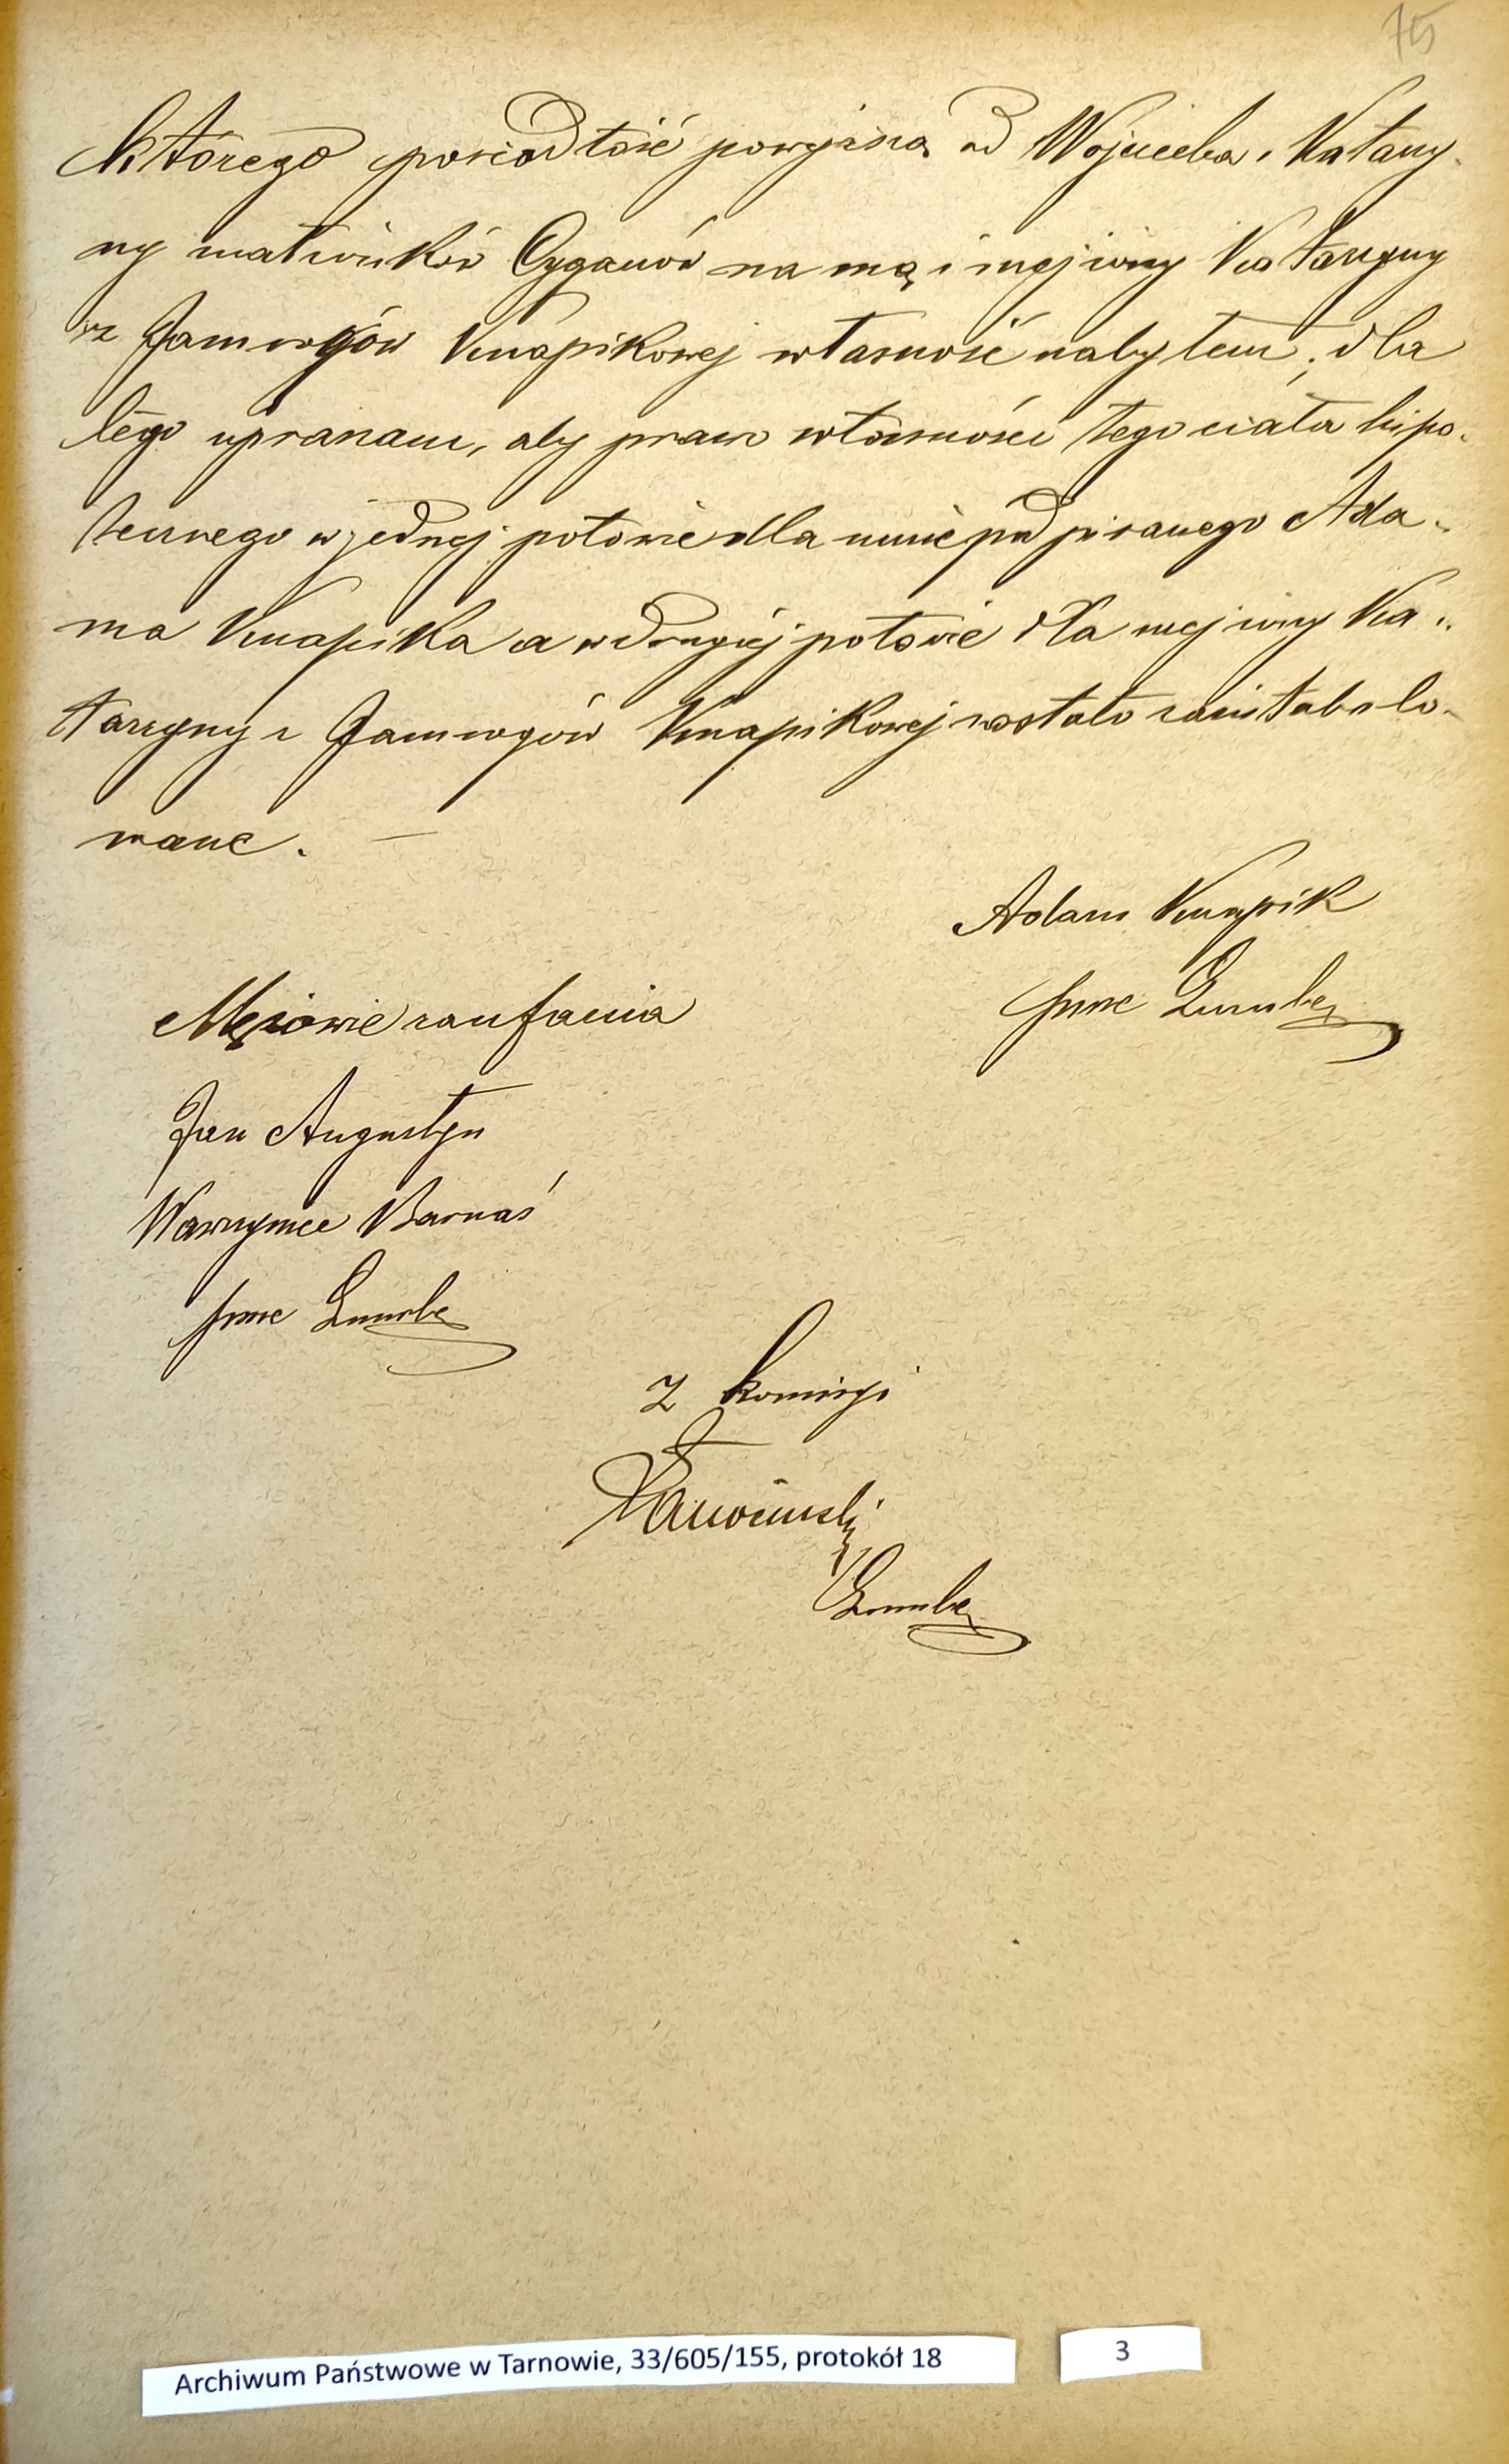 75
którego posiadłość powyższą od Wojciecha i Katarzy-
ny małżonków Cyganów na mą i mej żony Katarzyny
z Jamrogów Knapikowej własność nabyłem; dla
tego upraszam, aby prawo własności tego ciała hipo-
tecznego w jednej połowie dla mnie podpisanego Ada-
ma Knapika a w drugiej połowie dla mej żony Ka-
tarzyny z Jamrogów Knapikowej zostało zaintabulo-
wane. —
Adam Knapik
Mężowie zaufania
Jan Augustyn
Wawrzyniec Barnaś
Z komisyi
Archiwum Państwowe w Tarnowie, 33/605/155, protokół 18
3